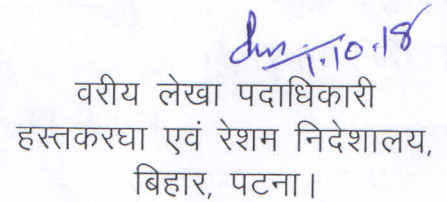 1.10.18
वरीय लेखा पदाधिकारी
हस्तकरघा एवं रेशम निदेशालय,
बिहार, पटना।